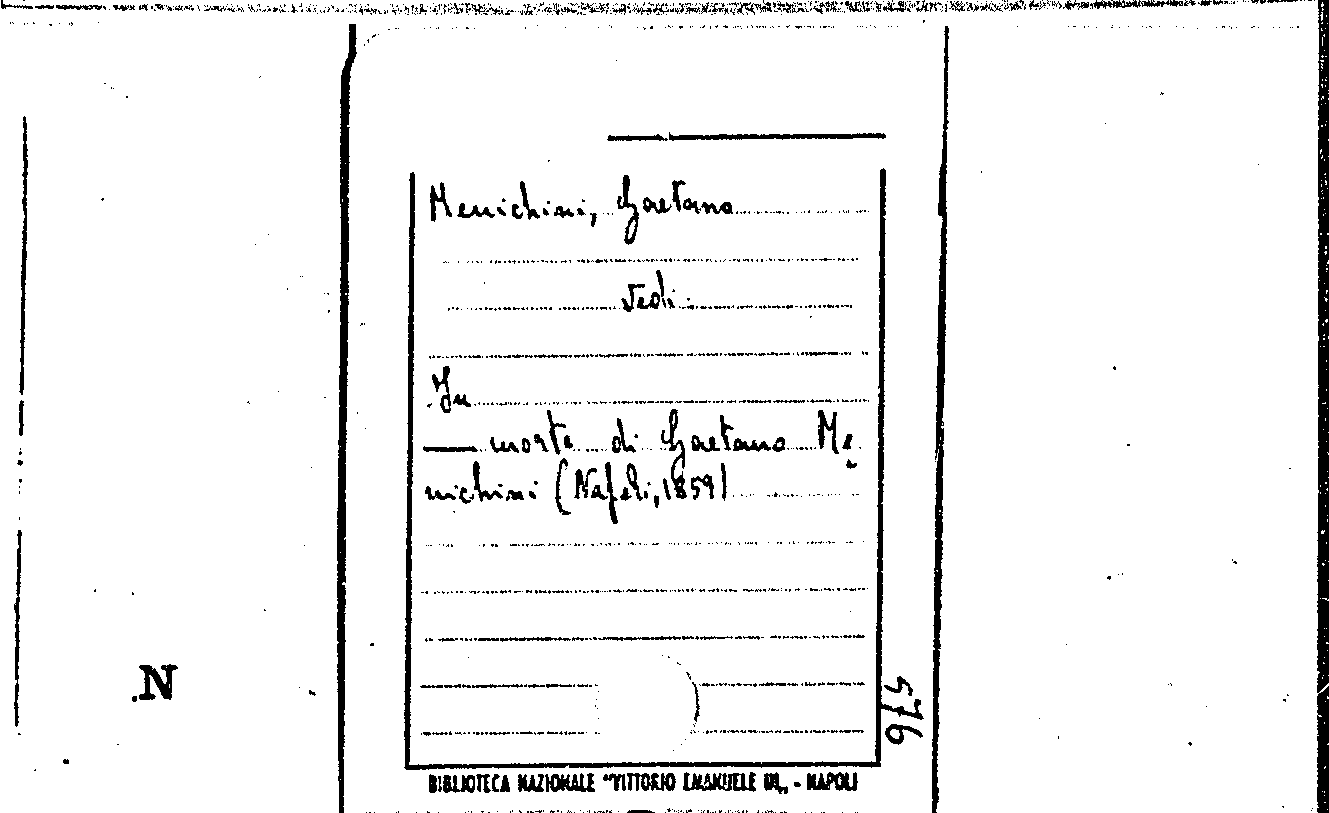 Menichini, Gaetano
Vedi:
In
—— morte di Gaetano Me
nichini (Napoli, 1859)
N
576
BIBLIOTECA NAZIONALE "VITTORIO EMANUELE III„ - NAPOLI